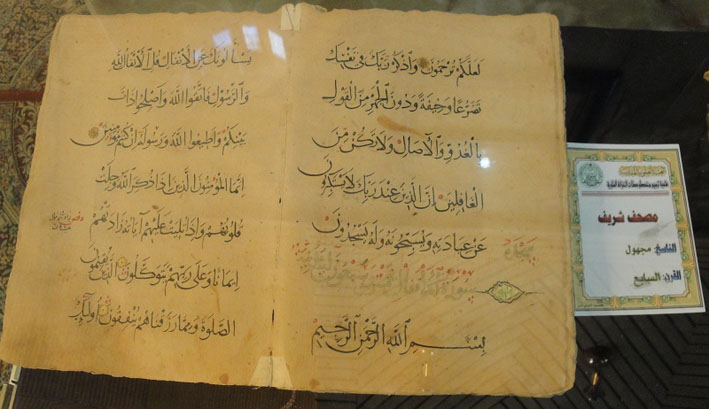 لعلكم ترحمون واذكر ربك في نفسك
تضرعا وخيفة ودون الجهر من القول
بالغدو والآصال ولا تكن من
الغافلين ان الذين عند ربك لا يستكبرون
عن عبادته ويسبحونه وله يسجدون
سورة الانفال
بسم الله الرحمن الرحيم
يسألونك عن الانفال قل الانفال لله
والرسول فاتقوا الله واصلحوا ذات
بينكم واطيعوا الله ورسوله ان كنتم مؤمنين
انما المؤمنون الذين اذا ذكر الله وجلت
قلوبهم واذا تليت عليهم آياته زادتهم
ايمانا وعلى ربهم يتوكلون الذين يقيمون
الصلوة ومما رزقناهم ينفقون اولئك
مصحف شريف
الناسخ: مجهول
القرن: السابع